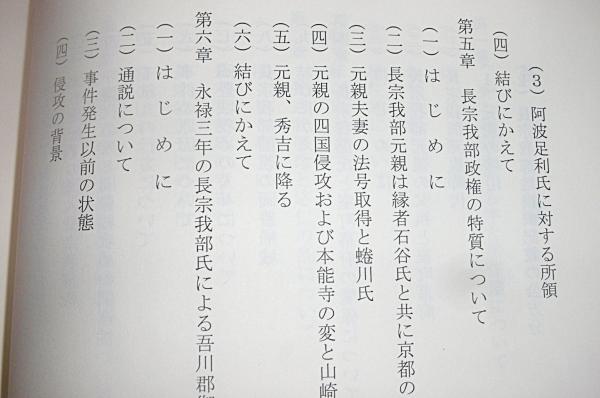 (3) 阿波足利氏に対する所領
(四) 結びにかえて
第五章 長宗我部政権の特質について
(一) はじめに
(二) 長宗我部元親は縁者石谷氏と共に京都の
(三) 元親夫妻の法号取得と蜷川氏
(四) 元親の四国侵攻および本能寺の変と山崎
(五) 元親、秀吉に降る
(六) 結びにかえて
第六章 永禄三年の長宗我部氏による吾川郡
(一) はじめに
(二) 通説について
(三) 事件発生以前の状態
(四) 侵攻の背景